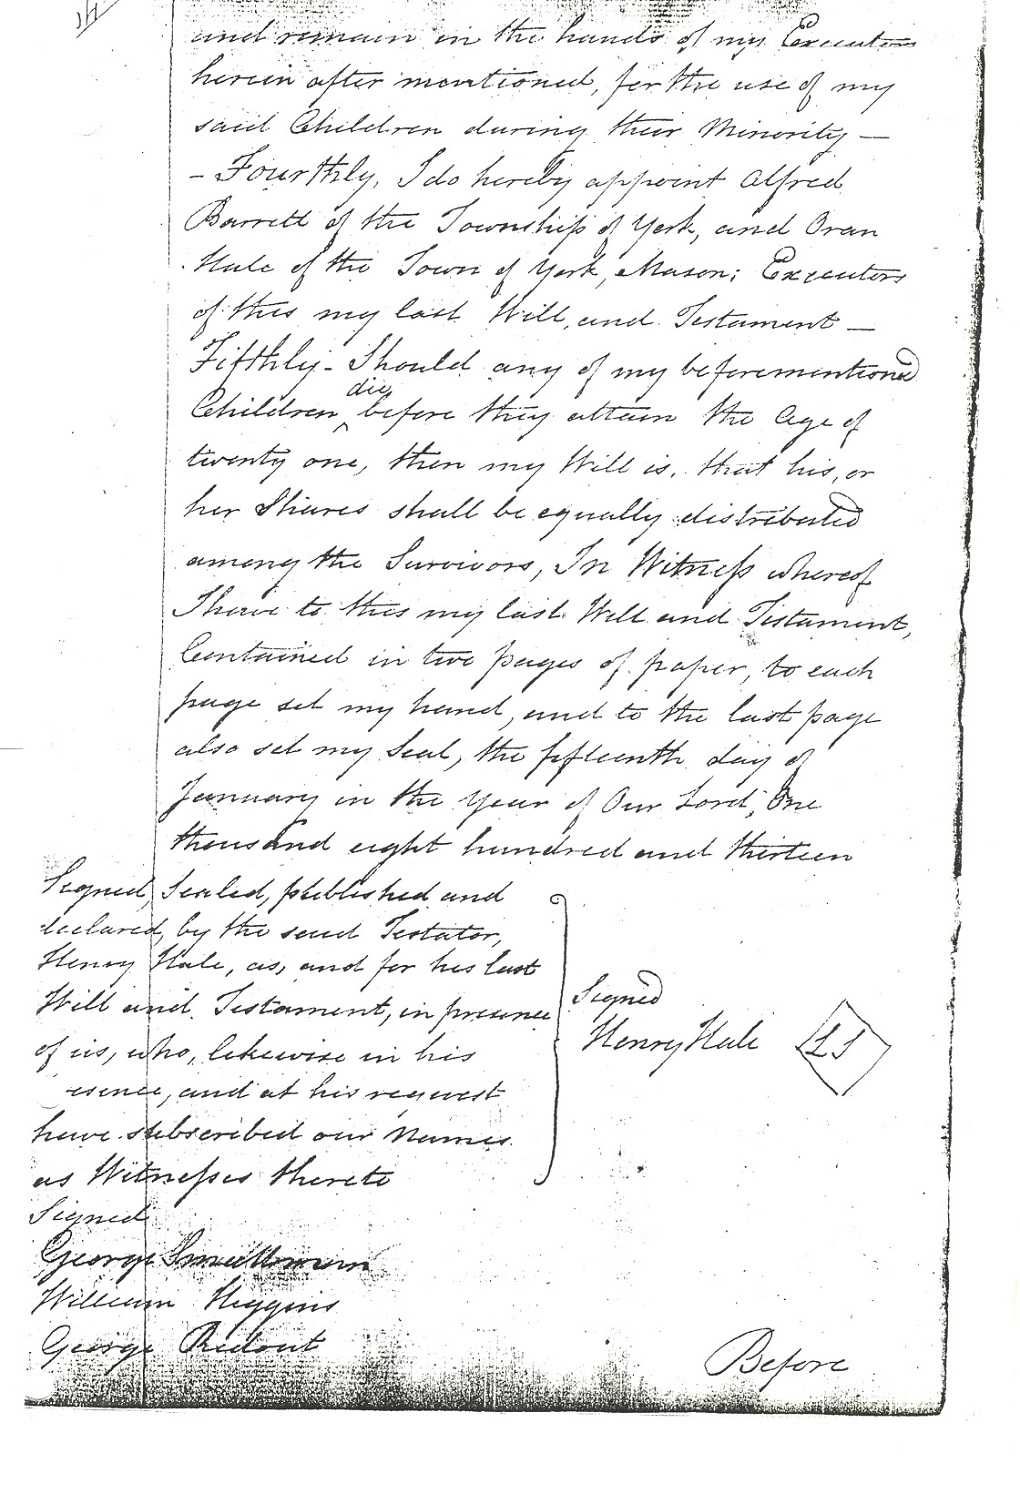 and remain in the hands of my Executors
herein after mentioned, for the use of my
said Children during their Minority —
– Fourthly, I do hereby appoint Alfred
Barrett of the Township of York, and Oran
Hale of the Town of York, Mason; Executors
of this my last Will, and Testament —
Fifthly – Should any of my beforementioned
die
Children ‸ before they attain the Age of
twenty one, then my Will is, that his, or
her Shares shall be equally distributed
among the Survivors, In Witness whereof
I have to this my last Will and Testament,
Contained in two pages of paper, to each
page set my hand, and to the last page
also set my Seal, the fifteenth day of
January in the Year of Our Lord, One
thousand eight hundred and thirteen
Signed, Sealed, published and
declared, by the said Testator,
Henry Hale, as, and for his last
Will and Testament, in presence
of us, who, likewise in his
esence, and at his request
have subscribed our Names
as Witnesses thereto
Signed
George Smallman
William Higgins
George Ridout
Signed
Henry Hale LS
Before